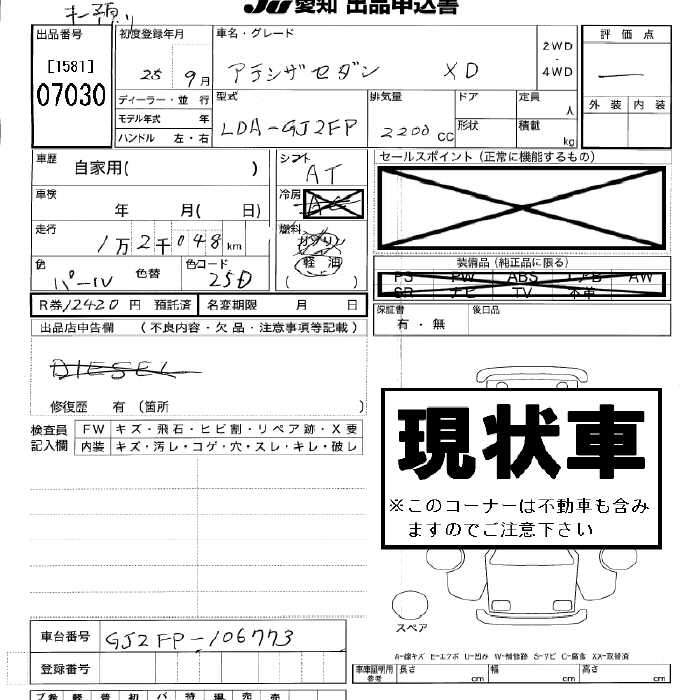 キー預り
JU 愛知 出品申込書
出品番号
[1581]
07030
初度登録年月
25 9月
ディーラー・並 行
モデル年式 年
ハンドル 左・右
車名・グレード
アテンザセダン XD
2WD
・
4WD
型式
LDA-GJ2FP
排気量
2200 CC
ドア
形状
定員
人
積載
kg
評 価 点
—
外 装 内 装
車歴 自家用( )
車検 年 月( 日)
走行 1万2千048km
色 パール 色替 色コード 25D
シフト
AT
冷房
AC
燃料
ガソリン
軽 油
( )
R券12420 円 預託済 名変期限 月 日
セールスポイント (正常に機能するもの)
装備品 (純正品に限る)
PS PW ABS エアB AW
SR ナビ TV 本革
保証書
有 ・ 無
後日品
出品店申告欄 (不良内容・欠 品・注意事項等記載)
DIESEL
修復歴 有 (箇所 )
検査員
記入欄
FW キズ・飛石・ヒビ割・リペア跡・X要
内装 キズ・汚レ・コゲ・穴・スレ・キレ・破レ
現状車
※このコーナーは不動車も含み
ますのでご注意下さい
スペア
車台番号 GJ2FP-106773
登録番号
A-線キズ E-エクボ U-凹み W-補修跡 S-サビ C-腐食 XX-取替済
車庫証明用
参考
長さ cm 幅 cm 高さ cm